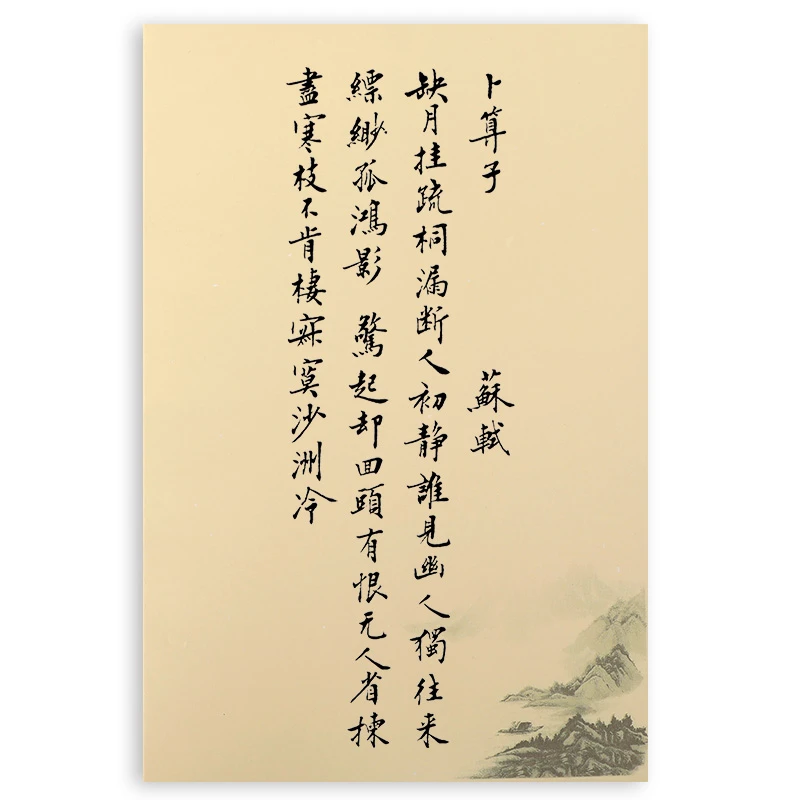 卜算子 蘇軾
缺月挂疏桐漏断人初静誰見幽人獨往来
縹緲孤鴻影 驚起却回頭有恨无人省揀
盡寒枝不肯棲寂寞沙洲冷